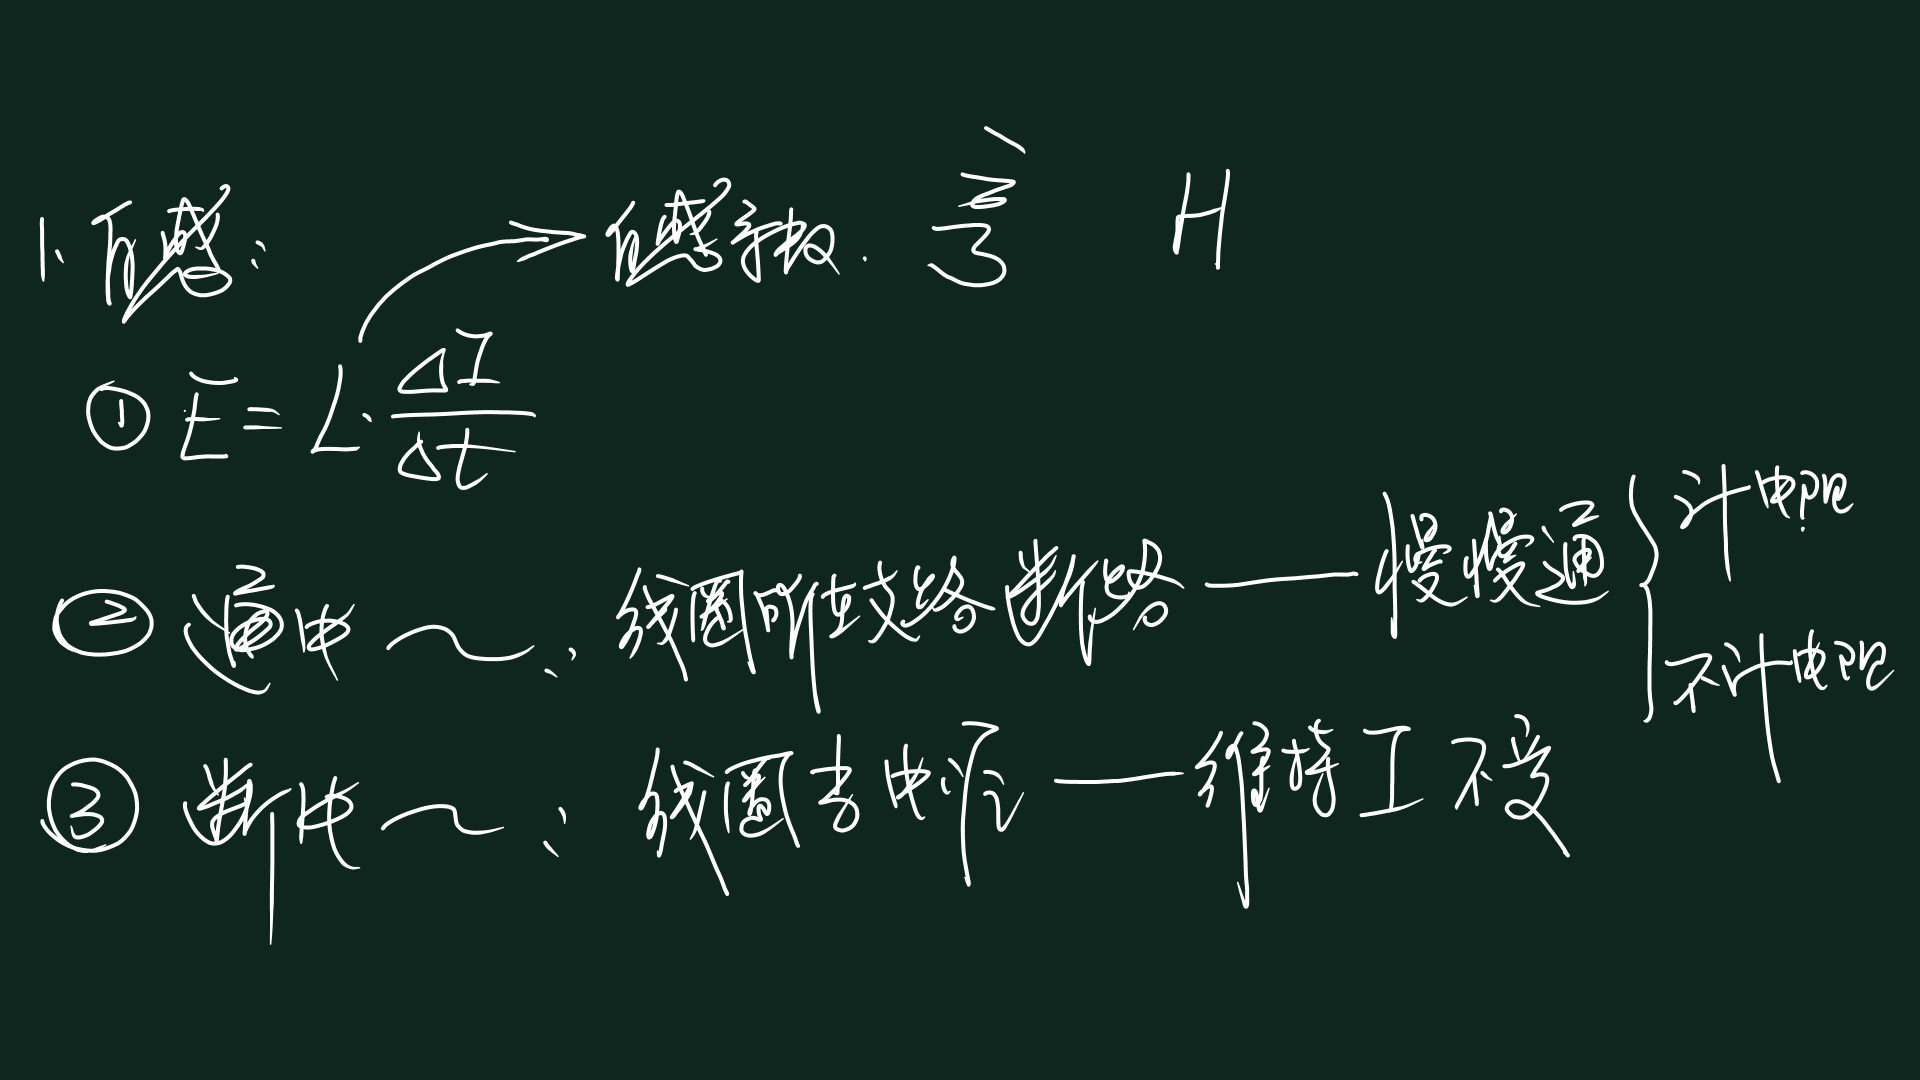 1. 自感:
自感系数. 亨 H
① E = L·ΔI/Δt
② 通电～: 线圈所在支路断路 — 慢慢通 { 计电阻
不计电阻
③ 断电～: 线圈当电源 — 维持I不变